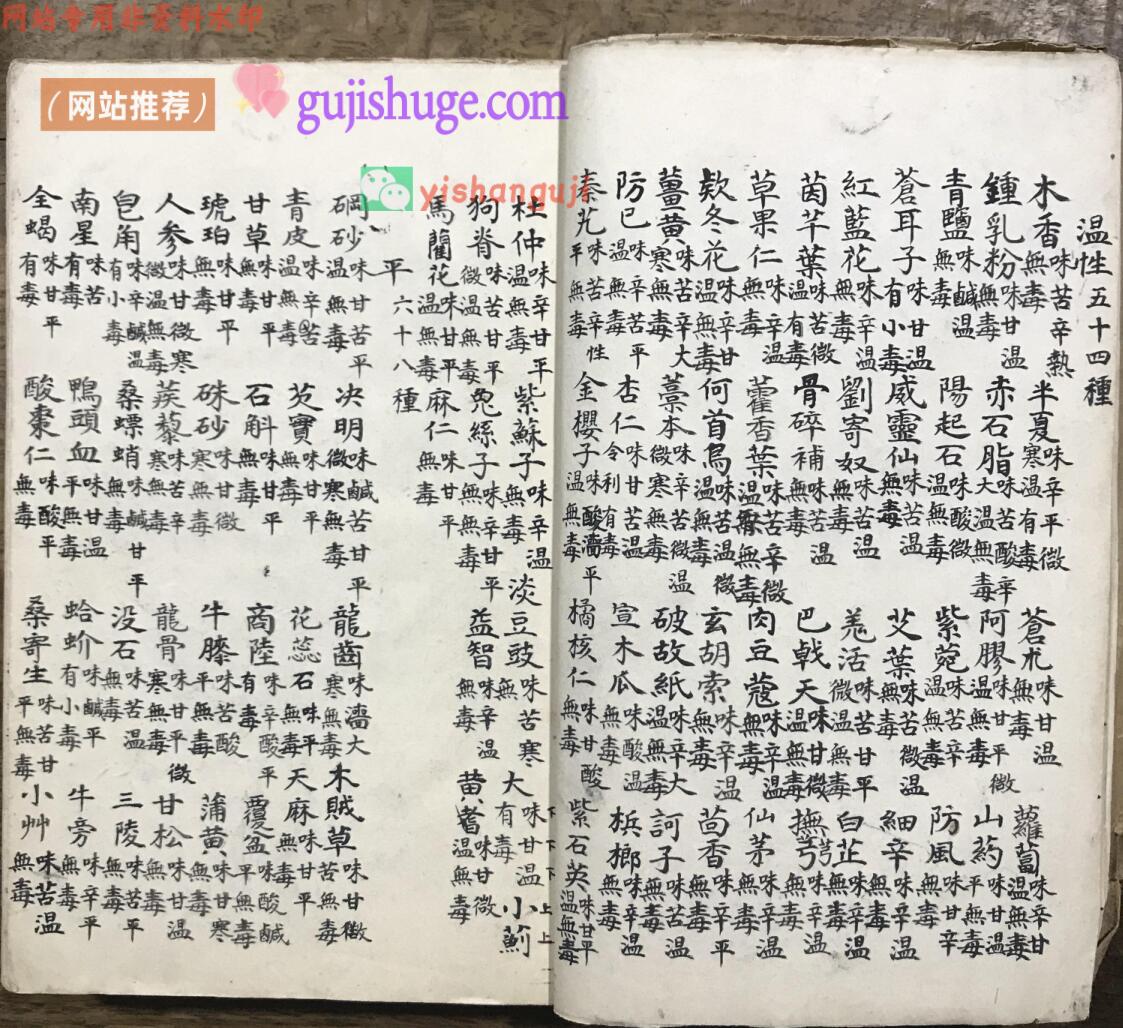 网站专用非资料水印
（网站推荐）
gujishuge.com
yishanguji
温性五十四種
木香味苦辛熱無毒 半夏味辛平微寒温有毒 蒼朮味甘温無毒 蘿蔔味辛甘温無毒
鍾乳粉味甘温無毒 赤石脂味甘酸辛大温無毒 阿膠味甘平微温無毒 山药味甘温平無毒
青鹽味鹹温無毒 陽起石味酸微温無毒 紫菀味苦辛温無毒 防風味甘辛無毒
蒼耳子味甘温有小毒 威靈仙味苦温無毒 艾葉味苦微温無毒 細辛味辛温無毒
紅藍花味辛温無毒 劉寄奴味苦温無毒 羌活味苦甘平微温無毒 白芷味辛温無毒
茵芋葉味苦微温有毒 骨碎補味苦温無毒 巴戟天味甘微温無毒 撫芎味辛温無毒
草果仁味辛温無毒 藿香葉味辛微温無毒 肉豆蔻味辛温無毒 仙茅味辛温無毒
欵冬花味辛甘温無毒 何首烏味苦温微温無毒 玄胡索味辛温無毒 茴香味辛平無毒
薑黄味辛苦大寒無毒 藁本味辛苦微温微寒無毒 破故紙味辛大温無毒 訶子味苦温無毒
防已味辛苦平温無毒 杏仁味甘苦温冷利有毒 宣木瓜味酸温無毒 梹榔味辛温無毒
秦艽味苦辛性平無毒 金櫻子味酸濇平温無毒 橘核仁味甘酸無毒 紫石英味甘平温無毒
杜仲味辛甘平温無毒 紫蘇子味辛温無毒 淡豆豉味苦寒無 大味甘温有毒 小薊
狗脊味苦甘平微温無毒 兔絲子味辛甘平無毒 益智味辛温無毒 黄蓍味甘微温無毒
馬藺花味甘平温無毒 麻仁味甘平無毒
平六十八種
硇砂味甘苦平温無毒 决明味鹹苦甘平微寒無毒 龍齒味濇大寒無毒 木賊草味甘微苦無毒
青皮味辛苦温無毒 芡實味甘平無毒 花蕊石味平無毒 天麻味甘平無毒
甘草味甘平無毒 石斛味甘平無毒 商陸味辛酸平有毒 覆盆味酸鹹平無毒
琥珀味甘平無毒 硃砂味甘微寒無毒 牛膝味苦酸平無毒 蒲黄味甘寒無毒
人參味甘微寒微温無毒 蒺藜味苦辛寒無毒 龍骨味甘平微寒無毒 甘松味甘温無毒
皂角味辛鹹温有小毒 桑螵蛸味鹹甘平無毒 没石味苦温無毒 三陵味苦平無毒
南星味苦有毒 鴨頭血味甘温平無毒 蛤蚧味鹹平有小毒 牛旁味辛平無毒
全蝎味甘平有毒 酸棗仁味酸平無毒 桑寄生味苦甘平無毒 小艸味苦温無毒